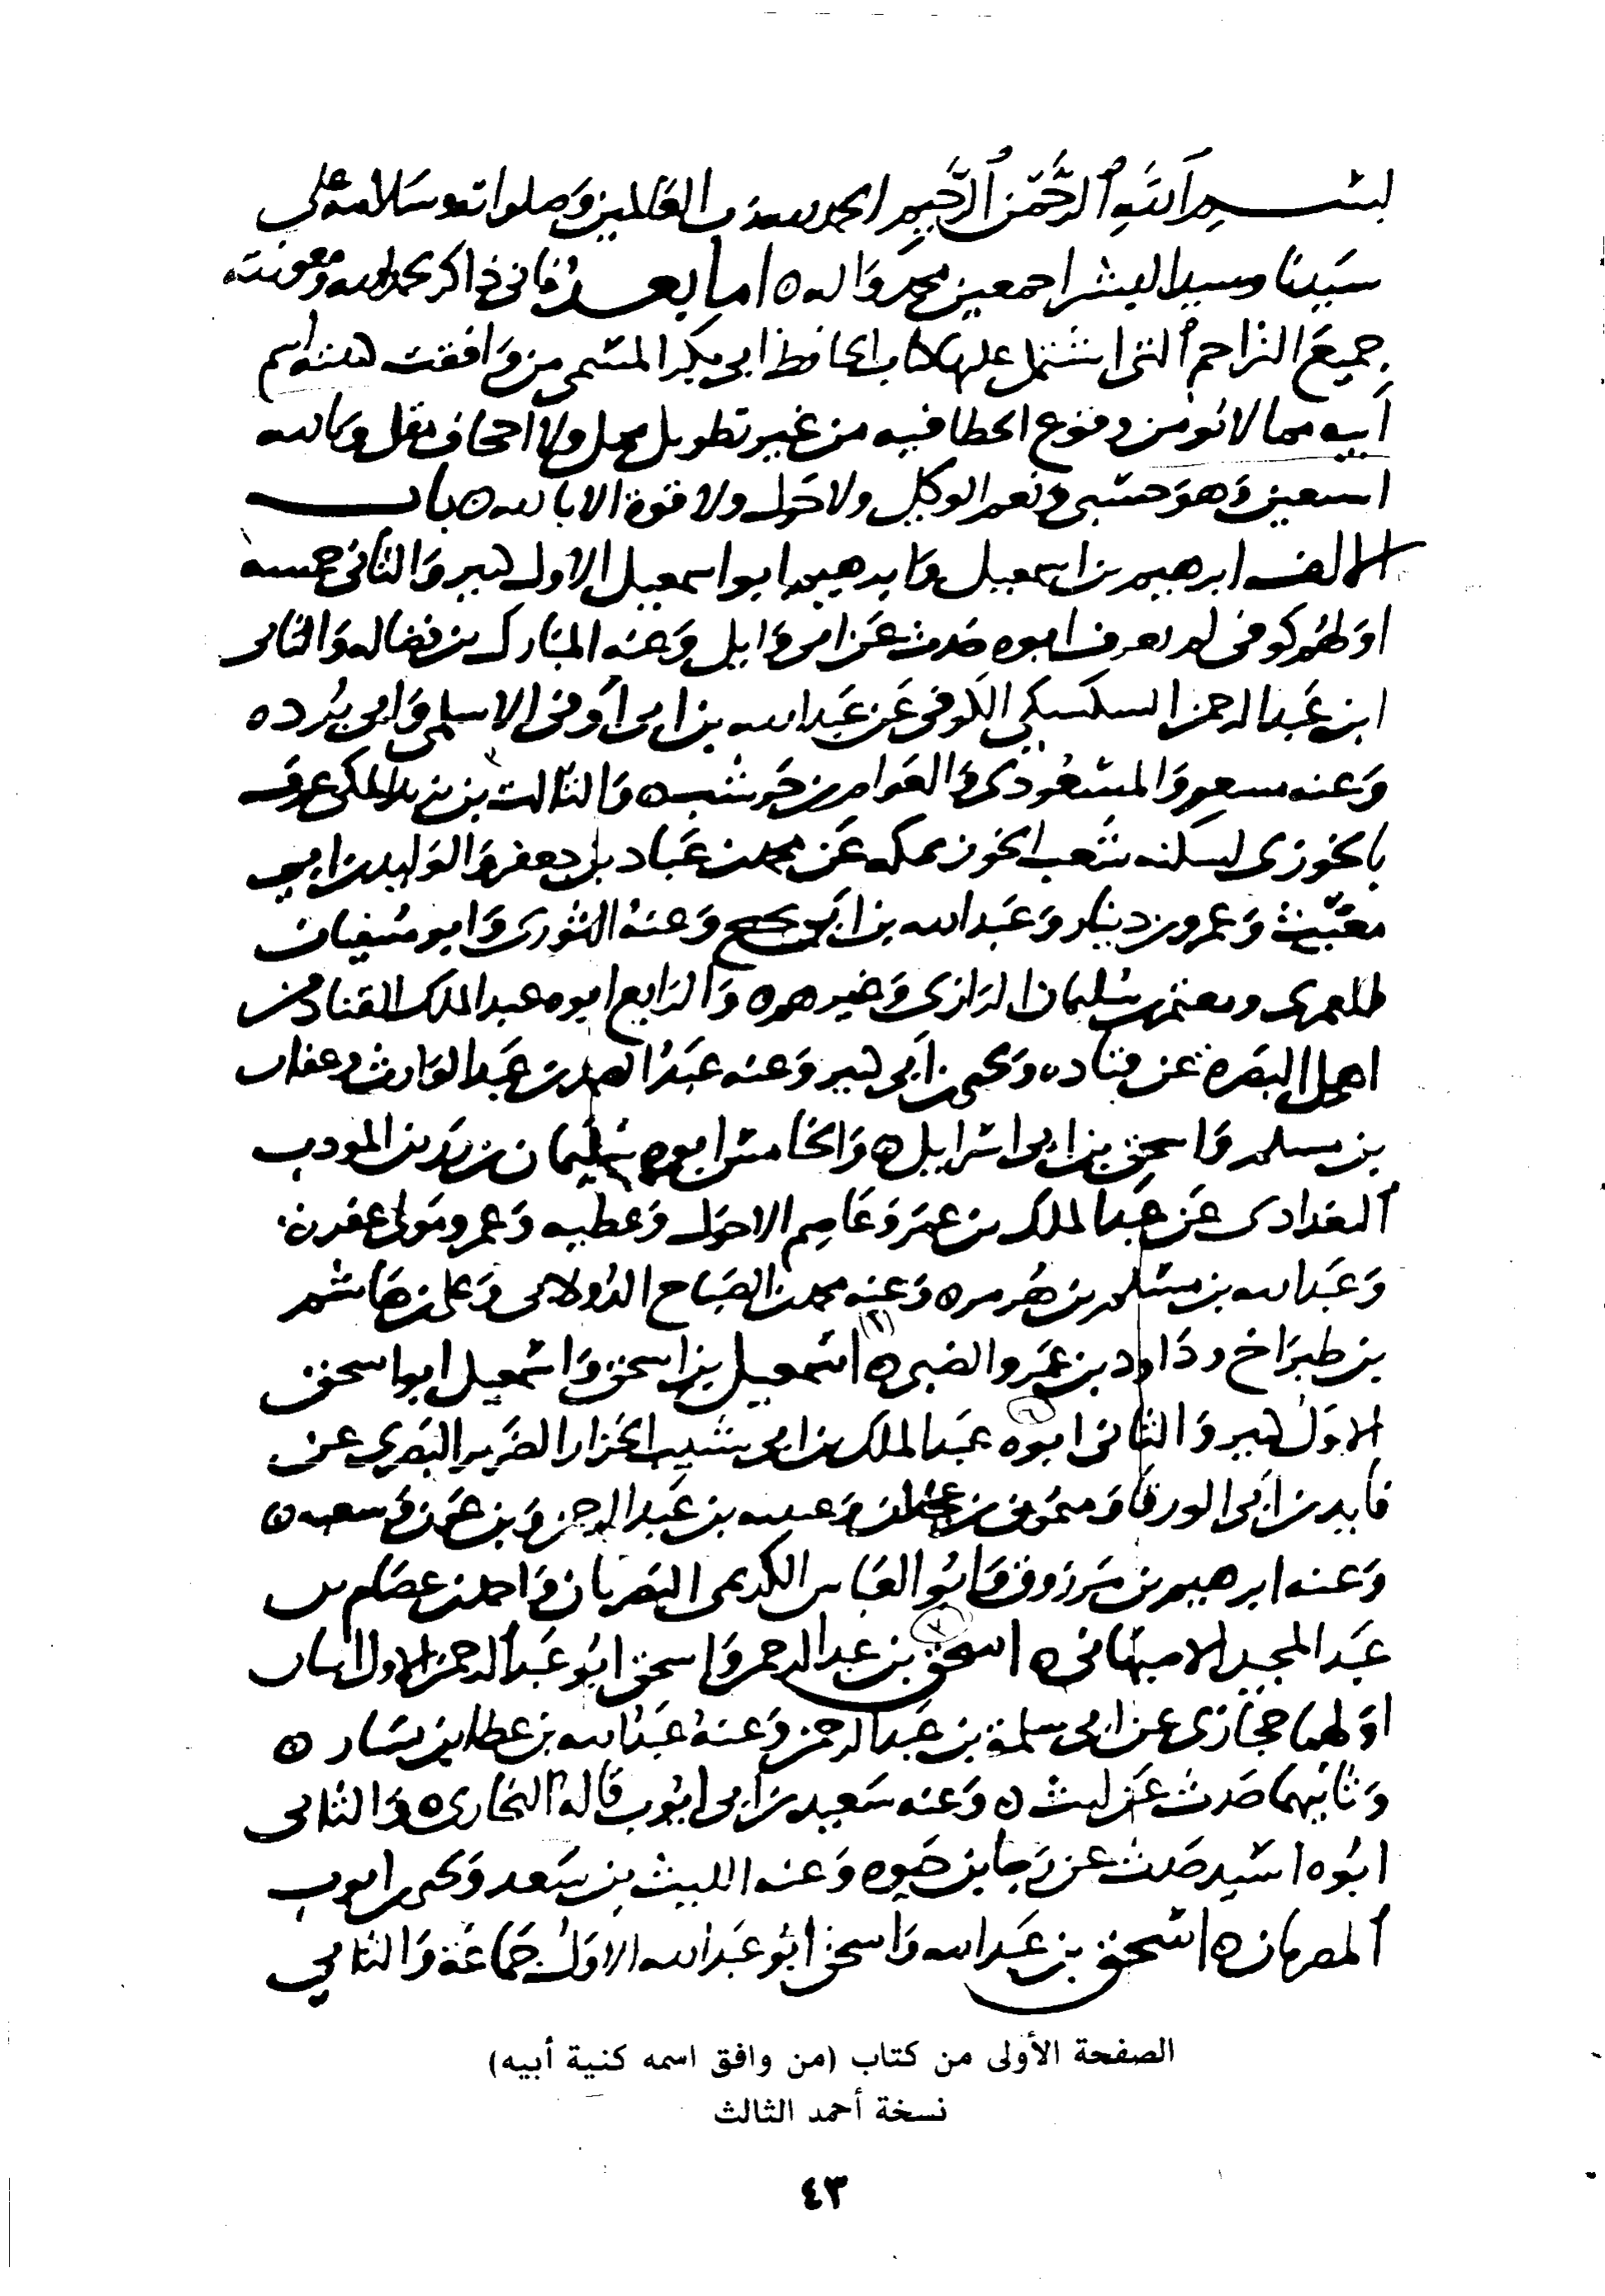 بسم الله الرحمن الرحيم الحمد لله رب العالمين وصلواته وسلامه على
سيدنا وسيد البشر اجمعين محمد واله ه اما بعد فانى ذاكر بحمد الله ومعونته
جميع التراجم التى اشتمل عليها كتاب الحافظ ابى بكر المسمى من وافقت كنيته اسم
ابيه مما لا نومن وقوع الخطا فيه من غير تطويل ممل ولا اجحاف مقل وبالله
استعين وهو حسبى ونعم الوكيل ولا حول ولا قوة الا بالله ه باب
الالف ابرهيم بن اسمعيل وابرهيم ابو اسمعيل الاول كبير والثانى خمسه
اولهم كوفى لم يعرف ابوه حدث عن ابى وايل وعنه المبارك بن فضاله والثانى
ابن عبد الرحمن السكسكى الكوفى عن عبد الله بن ابى اوفى الاسلمى وابى برده
وعنه مسعر والمسعودى والعوام بن حوشب ه والثالث بن يزيد المكى عرف
بالخوزى لسكنه شعب الخوز بمكه عن محمد بن عباد بن جعفر والوليد بن ابى
مغيث وعمرو بن دينار وعبد الله بن ابى نجيح وعنه الثورى وابو سفيان
المعمرى ومعتمر بن سليمان الرازى وغيرهم ه والرابع ابوه عبد الملك القناد من
اهل البصرة عن قتاده ويحيى بن ابى كثير وعنه عبد الصمد بن عبد الوارث وعفان
بن مسلم واسحق بن ابى اسرايل ه والخامس ابوه سليمان بن رزين المودب
البغدادى عن عبد الملك بن عمير وعاصم الاحول وعطيه وعمرو مولى عفره
وعبد الله بن مسلم بن هرمز ه وعنه محمد بن الصباح الدولابى وعلى بن هاشم
بن طبراخ وداود بن عمرو الضبى ه اسمعيل بن اسحق واسمعيل ابو اسحق
الاول كبير والثانى ابوه عبد الملك بن ابى شيبه الخزاز الضرير البصرى عن
فايد بن ابى الورقا وميمون بن عجلان وعبد بن عبد الرحمن وبن عون وشعبه ه
وعنه ابرهيم بن مرزوق وابو العباس الكديمى البصريان واحمد بن عصام بن
عبد المجيد الاصبهانى ه اسحق بن عبد الرحمن واسحق ابو عبد الرحمن الاول اثنان
اولهما حجازى عن ابى سلمة بن عبد الرحمن وعنه عبد الله بن عطا بن يسار ه
وثانيهما حدث عن ليث ه وعنه سعيد بن ابى ايوب قاله البخارى ه والثانى
ابوه اسيد حدث عن رجا بن حيوه وعنه الليث بن سعد ويحيى بن ايوب
المصريان ه اسحق بن عبد الله واسحق ابو عبد الله الاول جماعة والثانى
الصفحة الأولى من كتاب (من وافق اسمه كنية أبيه)
نسخة أحمد الثالث
٤٣